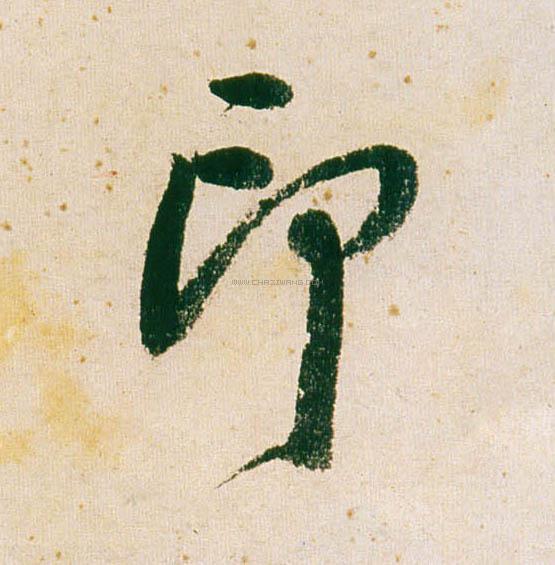 所
WWW.CHAZIWANG.COM